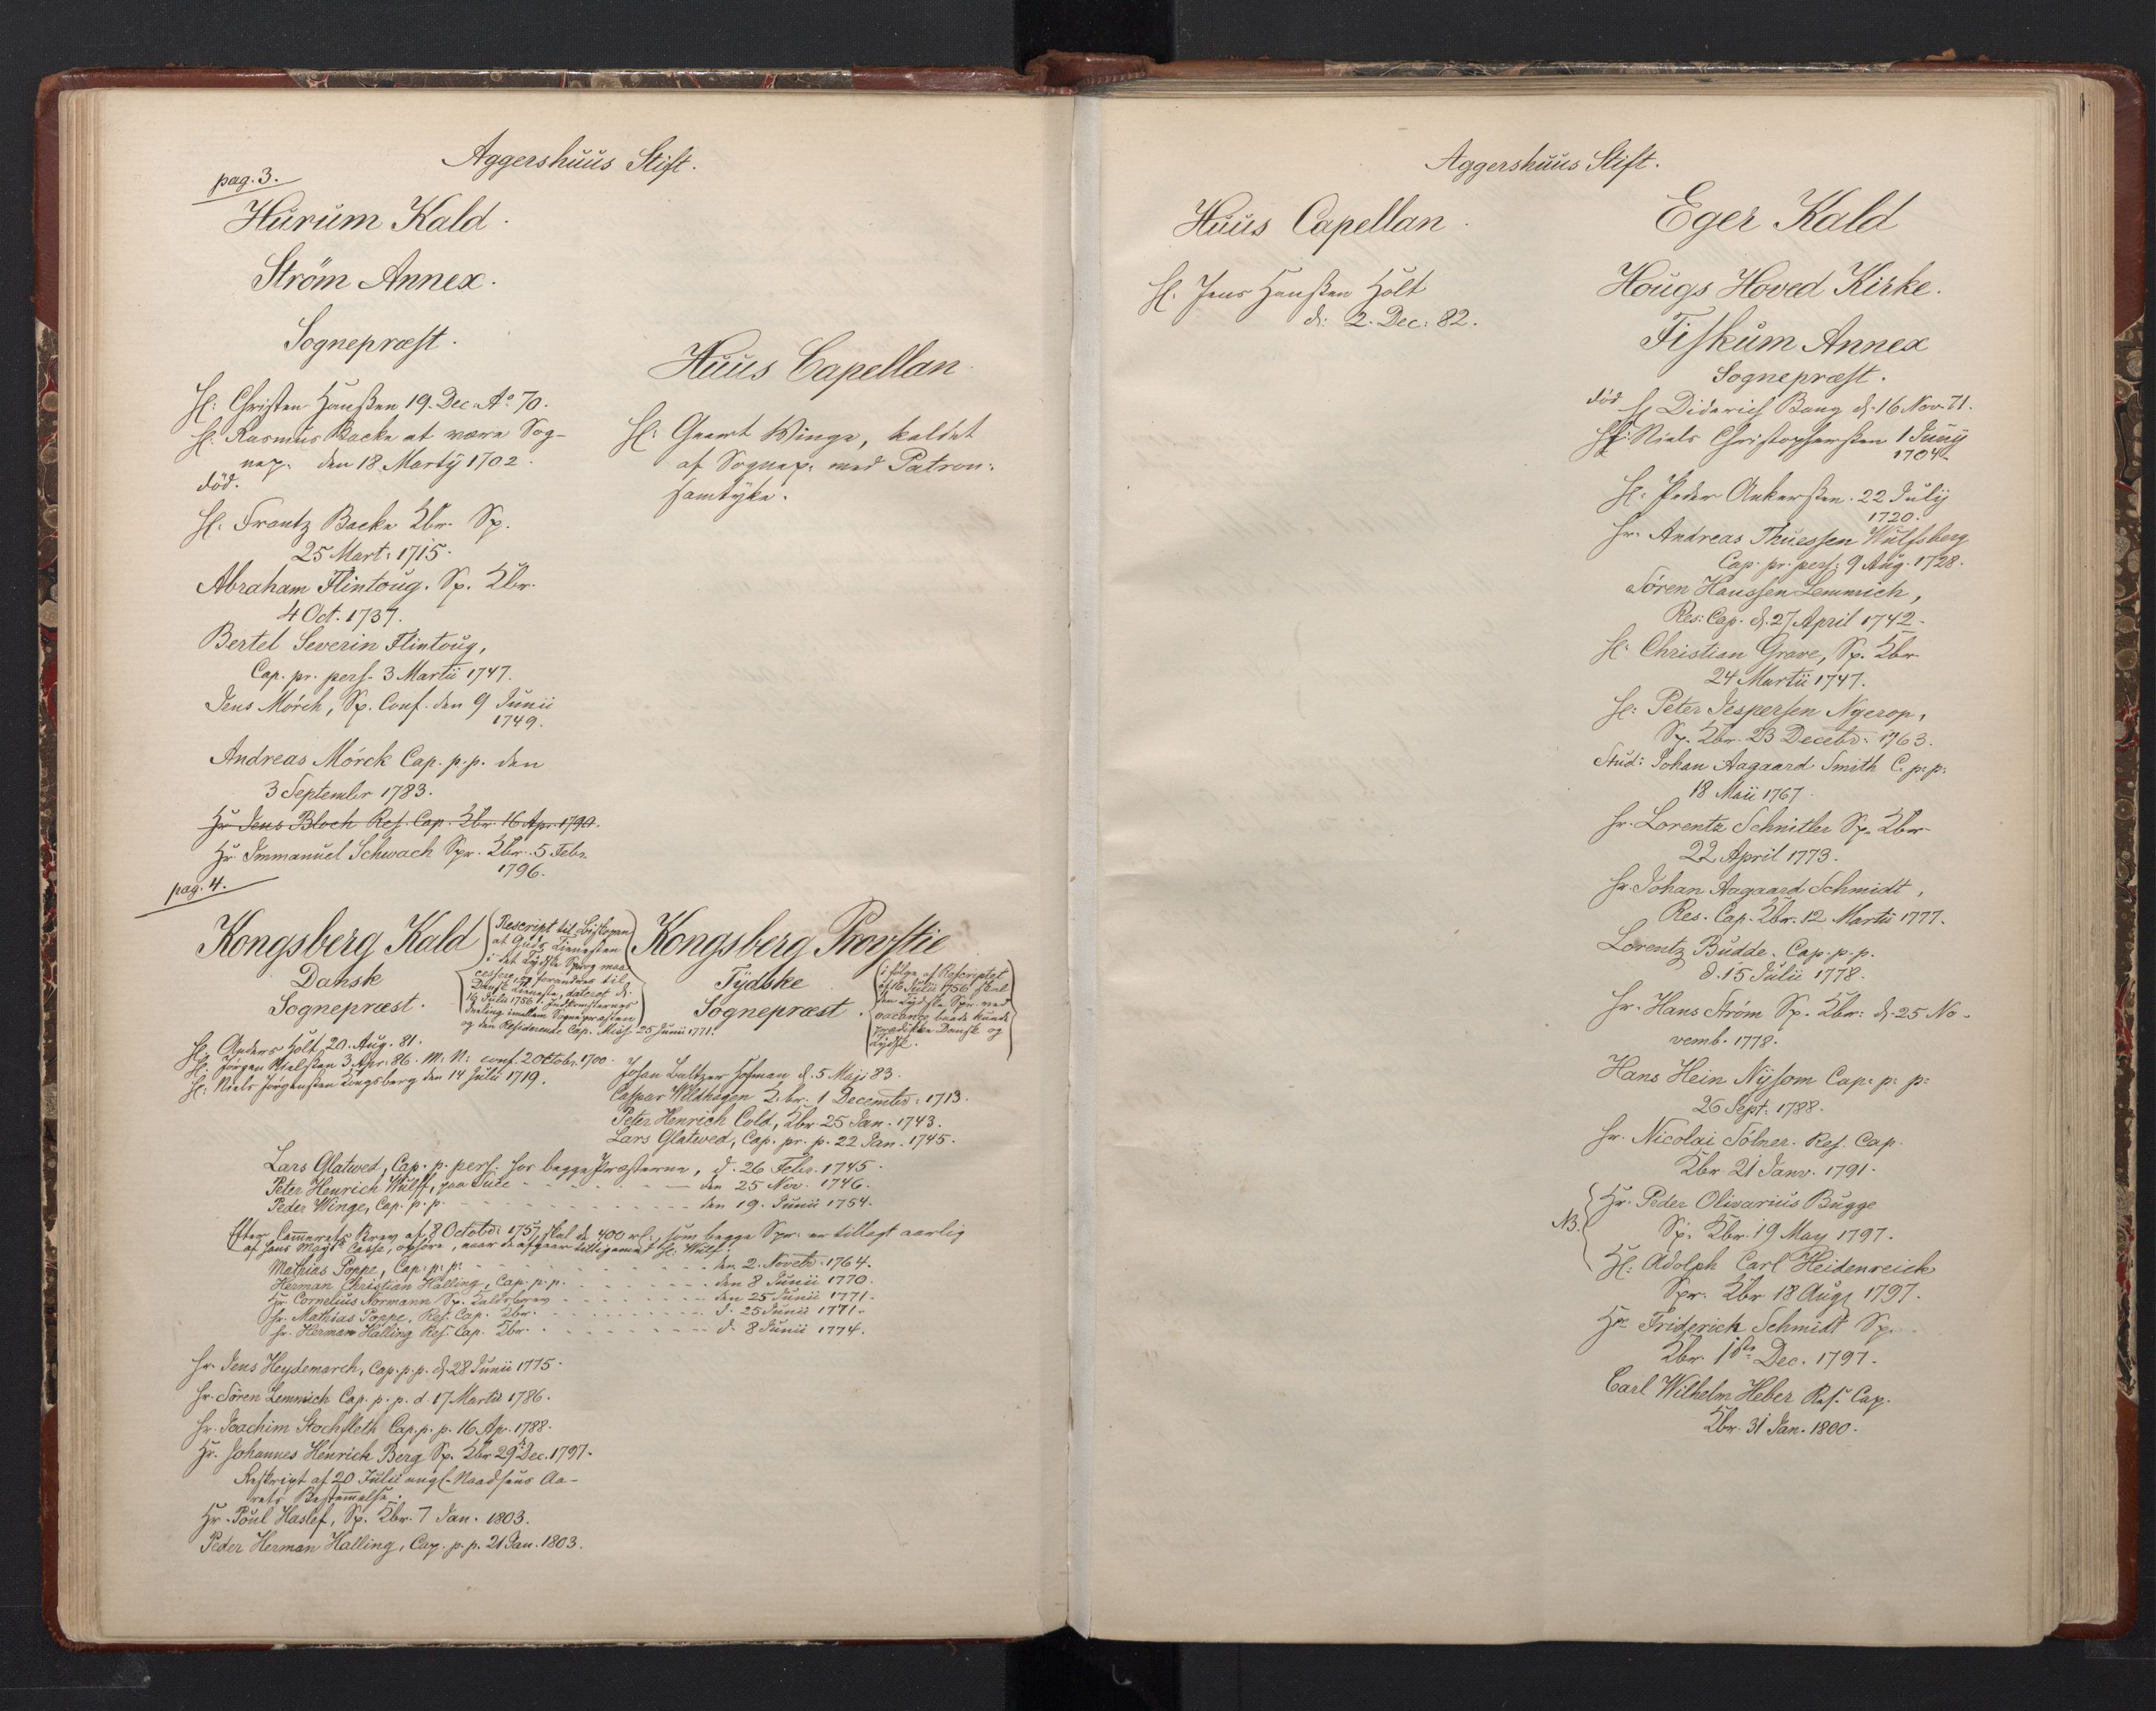 Aggershuus Stift.
pag. 3.
Hurum Kald.
Ström Annex.
Sognepræst.
H: Christen Hanßen 19. Dec. Aº 70.
H: Rasmus Backe at være Sog-
nep. den 18 Martÿ 1702.
död.
H: Frantz Backe Kbr. Sp.
25 Mart: 1715.
Abraham Flintoug. Sp. Kbr.
4 Oct. 1737.
Bertel Severin Flintoug,
Cap. pr. pers. 3 Martii 1747.
Jens Mörch, Sp. Conf. den 9 Junii
1749.
Andreas Mörck Cap. p. p. den
3 September 1783.
Hr Jens Bloch Res. Cap. Kbr. 16 Apr. 1790.
Hr. Immanuel Schwach Spr. Kbr. 5 Febr.
1796.
Huus Capellan
H: Geert Winge, kaldet
af Sognep: med Patron:
samtÿke.
pag. 4.
Kongsberg Kald
Dansk
Sognepræst.
Rescript til Biskopen
at Guds Tienesten
i det Tÿdske Sprog maa
cessere og forandres til
Dansk Tieneste, dateret d.
16 Julii 1756. Indkomsternes
deeling imellem Sognepræsten
og den Residerende Cap. Miss. 25 Junii 1771.
Kongsberg Provstie
Tÿdske
Sognepræst.
i fölge af Rescriptet
af 16 Julii 1756 skal
den Tÿdske Spr. ved
vacance baade kunde
prædike Dansk og
Tÿdsk.
H: Anders Holt 20. Aug. 81.
H: Jörgen Nielßen 3 Apr. 86. M: N: conf. 20 Octobr. 1700.
H: Niels Jörgenßen Kongsberg den 14 Julii 1719.
Johan Baltzer Hofman d. 5 Maji 83.
Caspar Wildhagen K. br. 1 Decembr: 1713.
Peter Henrich Cold, Kbr. 25 Jan. 1743.
Lars Glatved, Cap. pr. p. 22 Jan. 1745.
Lars Glatved, Cap. p. pers. hos begge Præsterne, d. 26 Febr. 1745.
Peter Henrich Wulff, den 25 Nov. 1746.
Peder Winge, Cap. p. p. den 19. Junii 1754.
Efter Cammerets Brev af 8 Octobr: 1757, skal de 400 rd:, som begge Spr. er tillagt aarlig
af Hans Mayts Casse, ophöre, naar de afgaaer H: Wulf.
Mathias Poppe, Cap: p: p: den 2. Novebr. 1764.
Herman Christian Halling, Cap. p. p. den 8 Junii 1770.
Hr. Cornelius Normann Sp. Kaldsbrev den 25 Junii 1771.
Hr. Mathias Poppe, Res. Cap. Kbr. d. 25 Junii 1771.
Hr. Herman Halling Res. Cap. Kbr. d. 8 Junii 1774.
Hr. Jens Heydemarch, Cap. p. p. d. 28 Junii 1775.
Hr. Sören Lemmich Cap. p. p. d. 17 Martii 1786.
Hr. Joachim Stochfleth Cap. p. p. 16 Ap. 1788.
Hr. Johannes Henrich Berg Sp. Kbr. 29 Dec. 1797.
Reskript af 20 Julii ang. Naadsens Aa-
rets Bestemelse.
Hr. Poul Haslef, Sp. Kbr. 7 Jan. 1803.
Peder Herman Halling, Cap. p. p. 21 Jan. 1803.
Aggershuus Stift.
Huus Capellan.
H. Jens Hanßen Holt
d: 2. Dec: 82.
Eger Kald
Hougs Hoved Kirke.
Fiskum Annex
Sognepræst.
död H Diderich Bang d. 16 Nov. 71.
H: Niels Christopherßen 1 Junÿ
1704.
H: Peder Ankerßen. 22 Julÿ
1720.
Hr. Andreas Thuessen Wulfsberg
Cap. pr. pers: 9 Aug. 1728.
Sören Hanssen Lemmich,
Res: Cap. d. 27 April 1742.
H: Christian Grave, Sp. Kbr.
24 Martii 1747.
H: Peter Jespersen Nÿerop,
Sp. Kbr. 23 Decebr. 1763.
Stud: Johan Aagaard Smith C. p: p:
18 Maii 1767.
Hr. Lorentz Schnitler Sp. Kbr.
22 April 1773.
Hr. Johan Aagaard Schmidt,
Res. Cap. Kbr. 12 Martii 1777.
Lorentz Budde. Cap. p. p.
d. 15 Julii 1778.
Hr. Hans Ström Sp. Kbr: d. 25 No-
vemb. 1778.
Hans Hein Nÿsom Cap: p: p:
26 Sept: 1788.
Hr. Nicolai Tölner. Res. Cap.
Kbr. 21 Janv. 1791.
NB. Hr. Peder Olivarius Bugge
Sp. Kbr. 19 May 1797.
H: Adolph Carl Heidenreich
Spr. Kbr 18 Aug 1797.
Hr Friderich Schmidt Sp.
Kbr. 1ste Dec. 1797.
Carl Wilhelm Heber Res. Cap.
Kbr. 31 Jan. 1800.